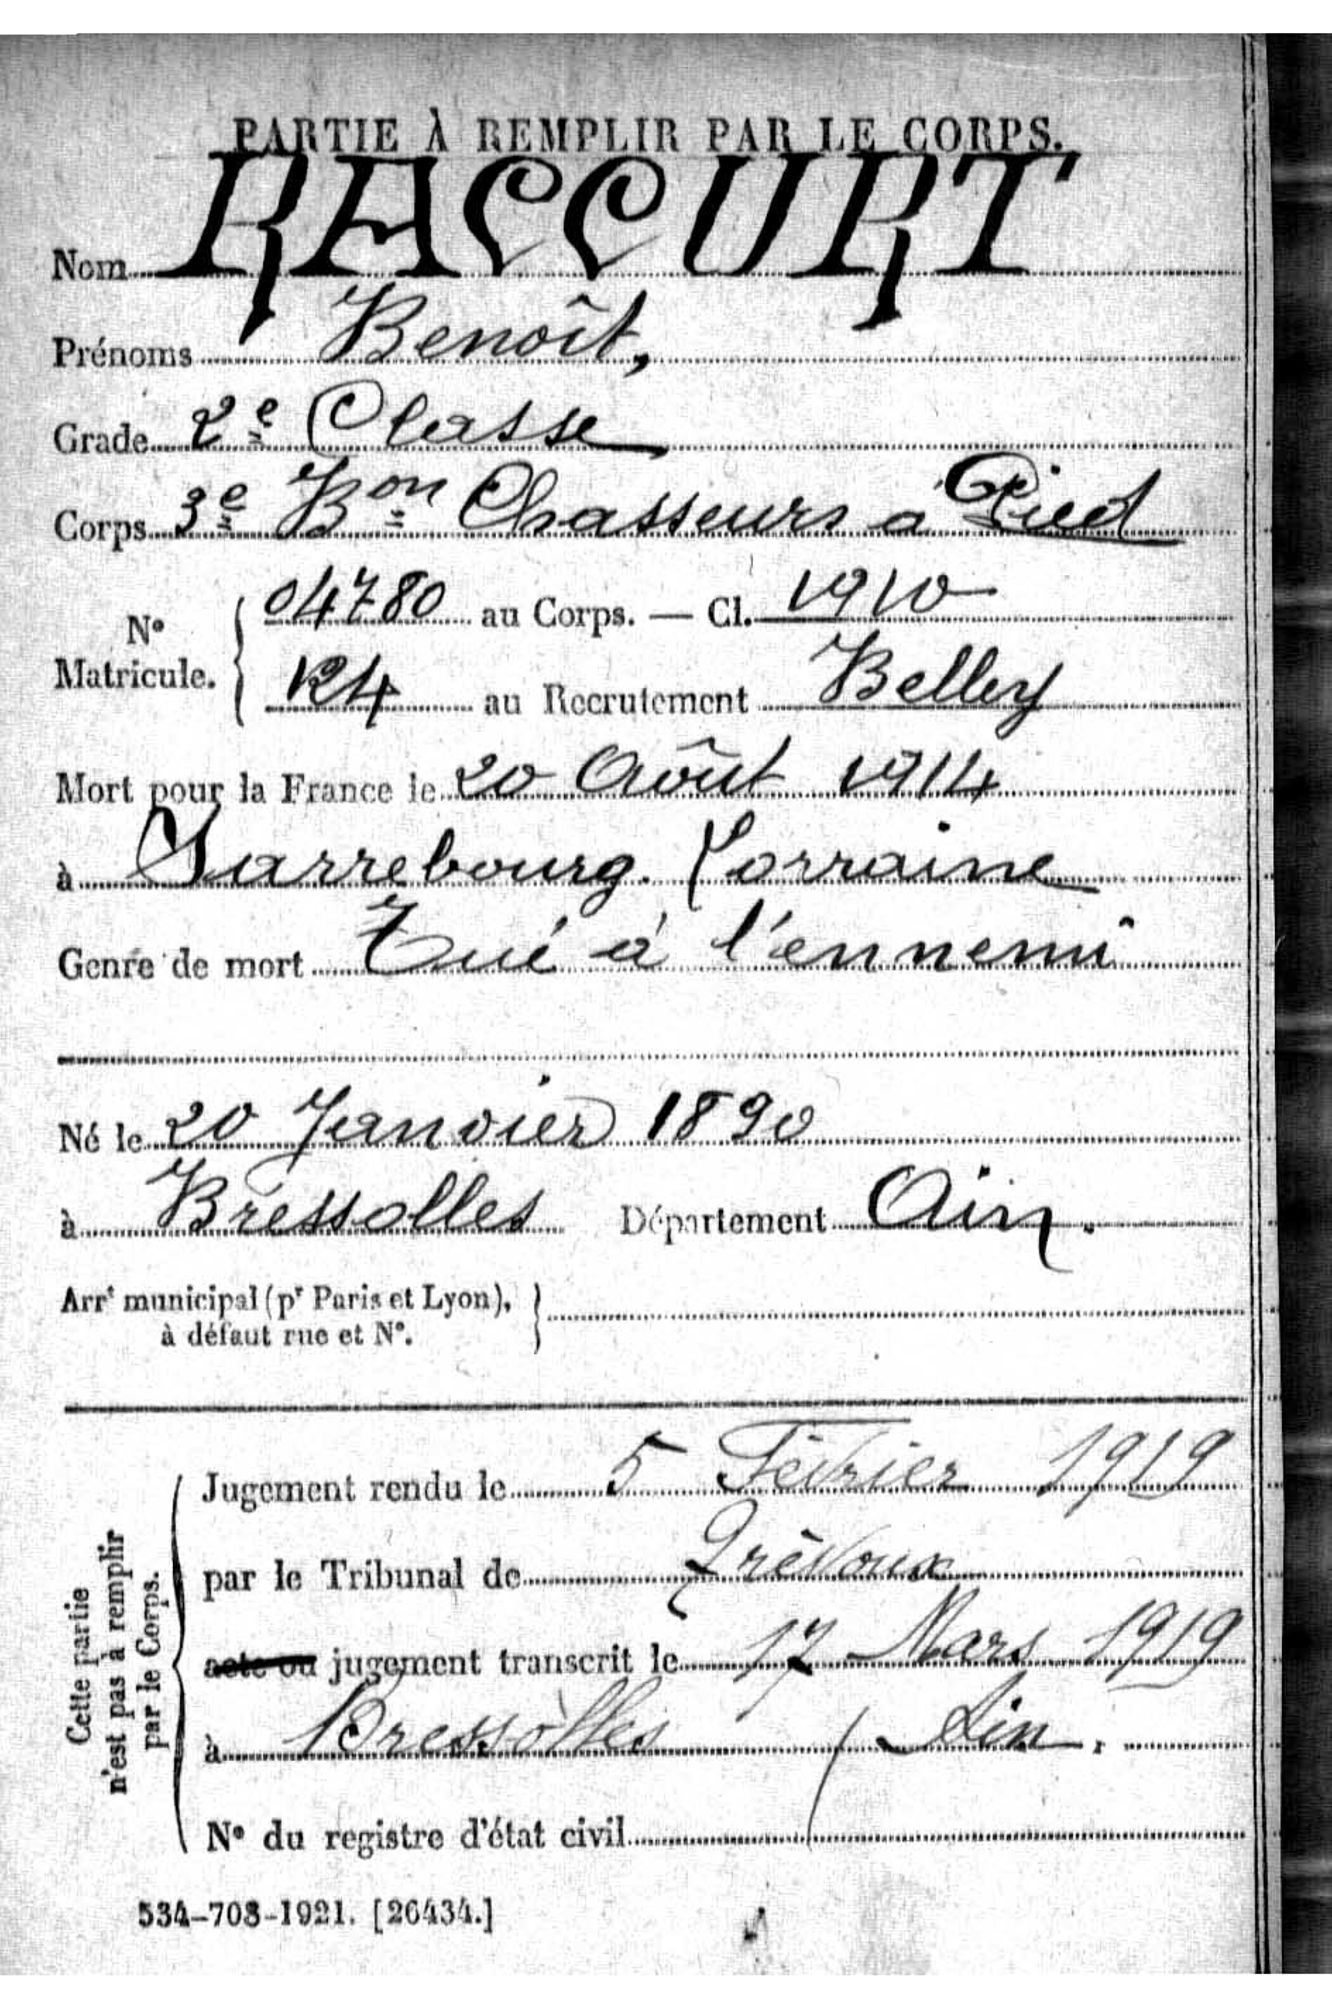 PARTIE À REMPLIR PAR LE CORPS.
Nom RACCURT
Prénoms Benoît,
Grade 2e Classe
Corps 3e Bon Chasseurs a Pied
No Matricule. { 04780 au Corps. — Cl. 1910
124 au Recrutement Belley
Mort pour la France le 20 Août 1914
à Sarrebourg. Lorraine
Genre de mort Tué à l'ennemi
Né le 20 Janvier 1890
à Bressolles Département Ain.
Arrt municipal (pr Paris et Lyon), }
à défaut rue et No.
Cette partie
n'est pas à remplir
par le Corps.
Jugement rendu le 5 Février 1919
par le Tribunal de Trévoux
acte ou jugement transcrit le 17 Mars 1919
à Bressolles (Ain.
No du registre d'état civil
534-708-1921. [26434.]